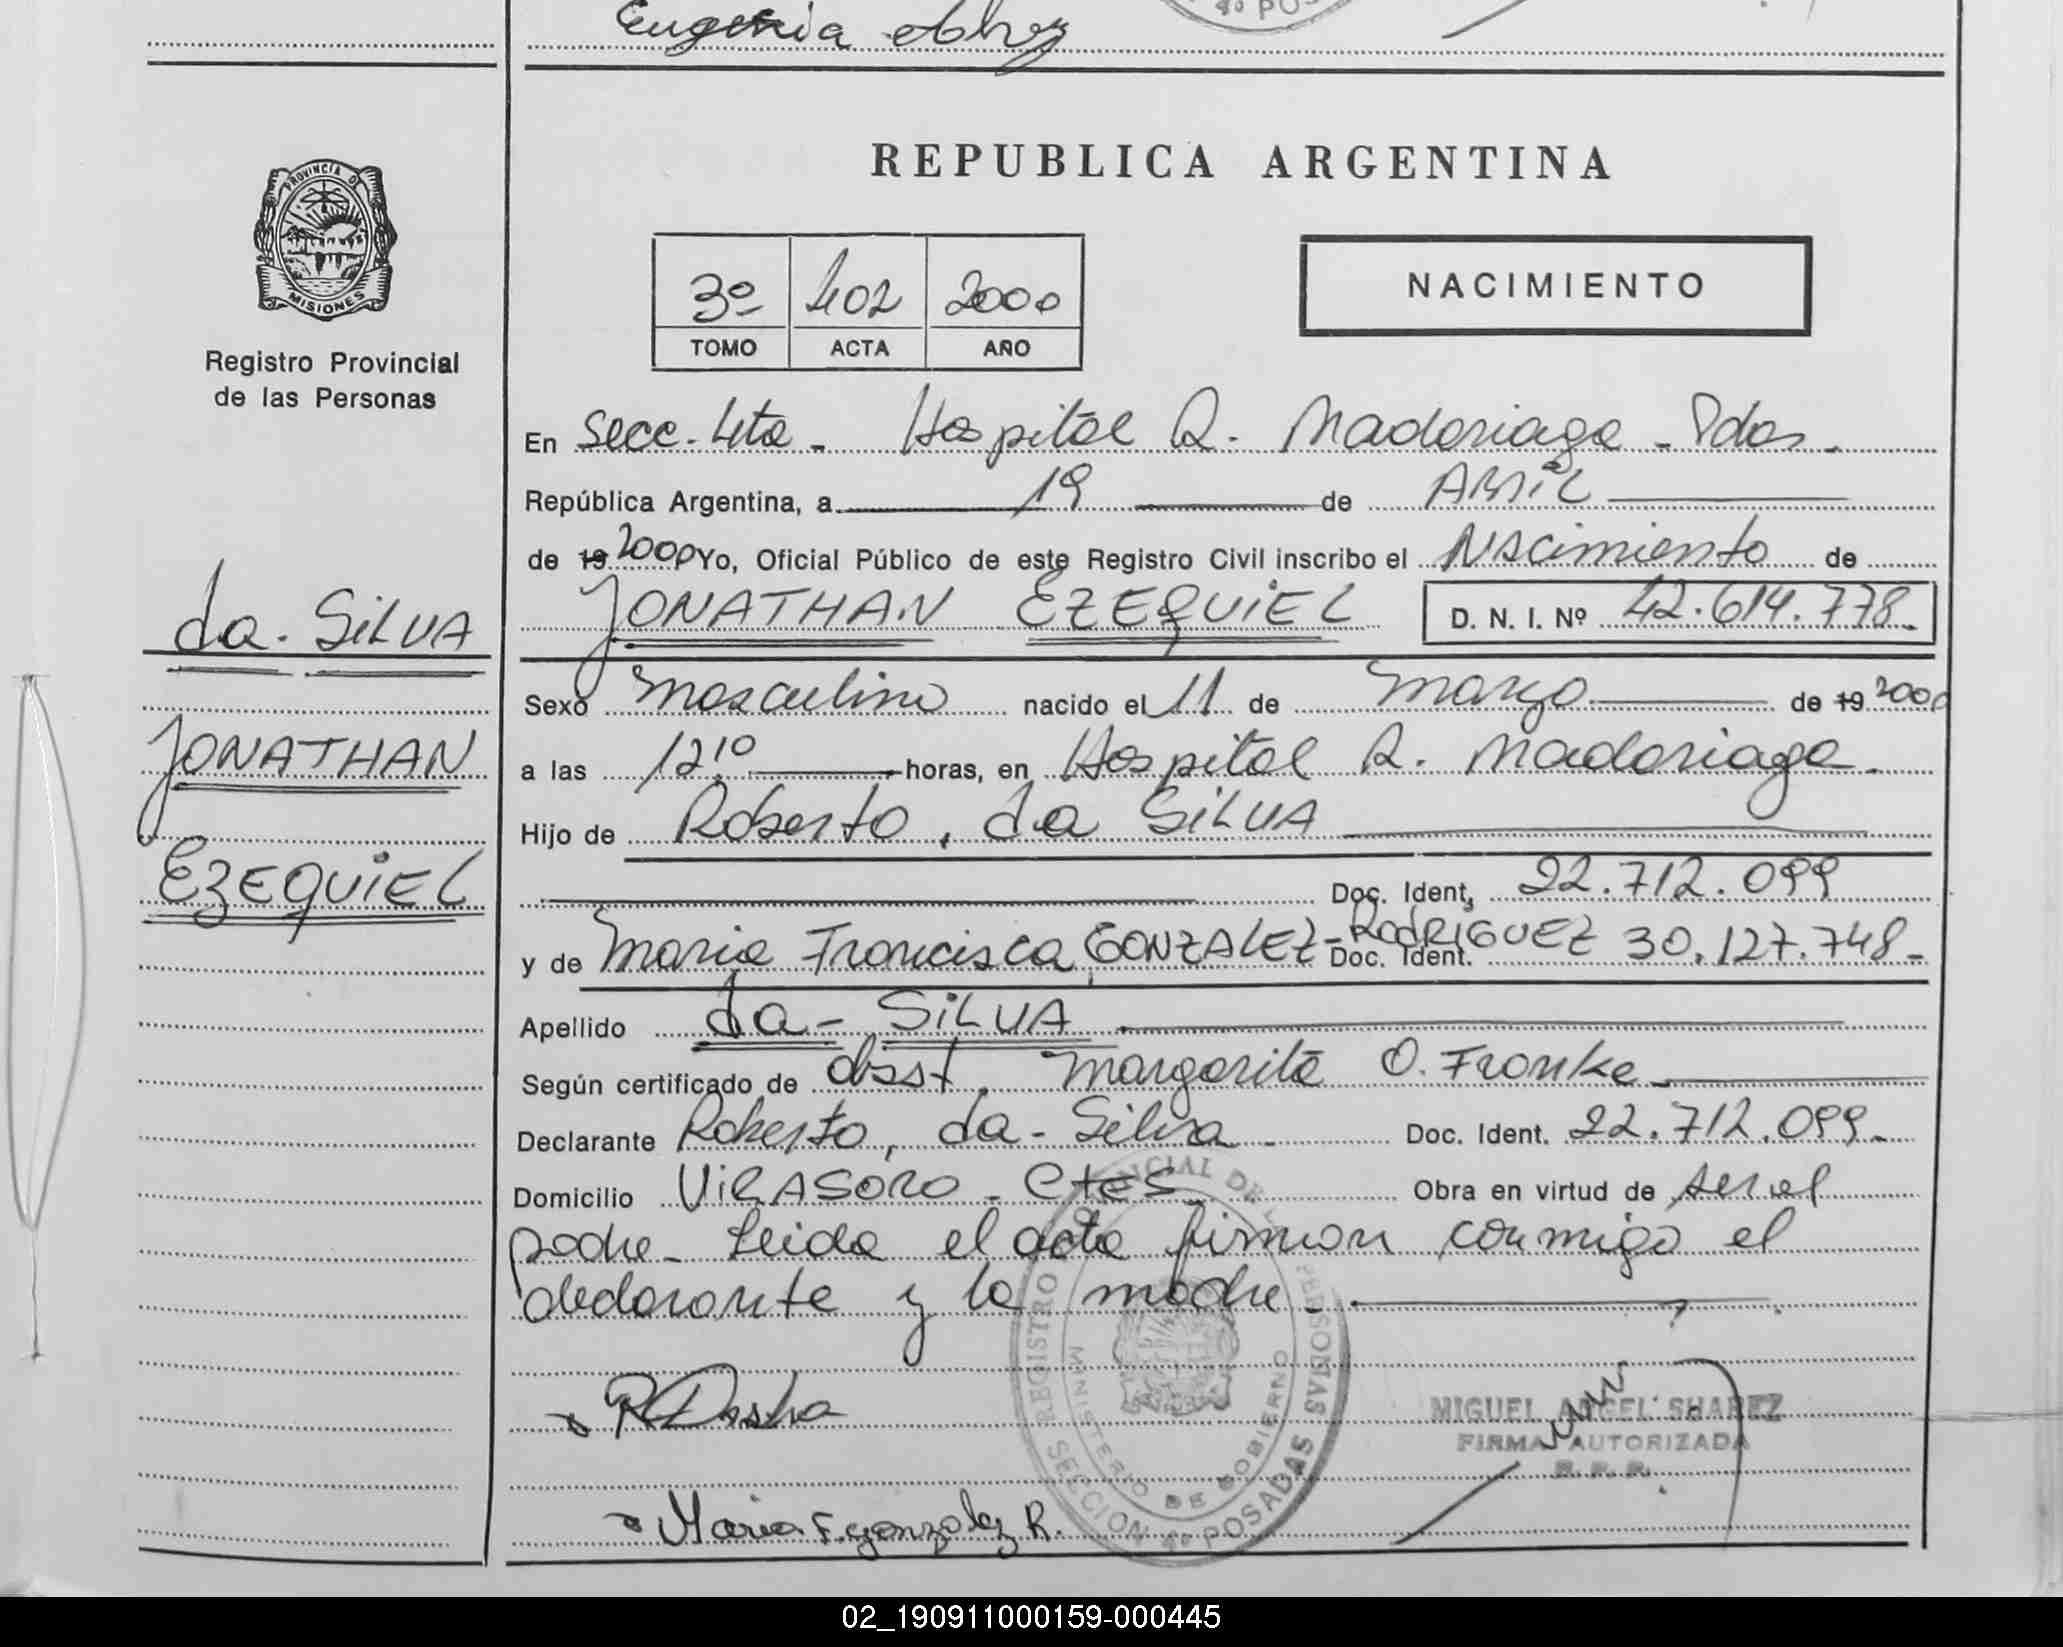 Eugenia
REPUBLICA ARGENTINA
PROVINCIA DE
MISIONES
Registro Provincial
de las Personas
3º 402 2000
TOMO ACTA AÑO
NACIMIENTO
da. SILVA
JONATHAN
EZEQUIEL
En Secc. 4ta - Hospital R. Madariaga - Pdas.
República Argentina, a 19 de ABRIL
de 19 2000 Yo, Oficial Público de este Registro Civil inscribo el Nacimiento de
JONATHAN EZEQUIEL D. N. I. Nº 42.614.778.
Sexo Masculino nacido el 11 de Marzo de 19 2000
a las 12,10 horas, en Hospital R. Madariaga.
Hijo de Roberto, da SILVA
Doc. Ident. 22.712.099
y de Maria Francisca, GONZALEZ-RODRIGUEZ Doc. Ident. 30.127.748-
Apellido da - SILVA
Según certificado de obst. Margarita O. Franke-
Declarante Roberto, da - Silva - Doc. Ident. 22.712.099-
Domicilio VIRASORO - Ctes Obra en virtud de ser el
padre - Leida el acta firman conmigo el
declarante y la madre -
MIGUEL ANGEL SUAREZ
FIRMA AUTORIZADA
R. P. P.
Maria F. gonzalez R.
REGISTRO PROVINCIAL DE LAS PERSONAS
MINISTERIO DE GOBIERNO
SECCION 4º POSADAS
02_190911000159-000445